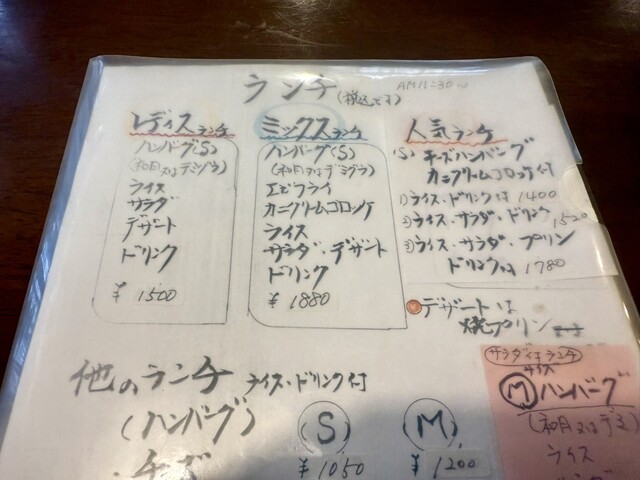 ランチ(税込です) AM11:30〜
レディスランチ
ハンバーグ(S)
(和月又はデミグラ)
ライス
サラダ
デザート
ドリンク
¥1500
ミックスランチ
ハンバーグ(S)
(和月又はデミグラ)
エビフライ
カニクリームコロッケ
ライス
サラダ・デザート
ドリンク
¥1880
人気ランチ
(S) チーズハンバーグ
カニクリームコロッケ付
①ライス・ドリンクは 1400
②ライス・サラダ・ドリンク 1520
③ライス・サラダ・プリン
ドリンクは 1780
デザートは
焼プリン
他のランチ ライス・ドリンク付
(ハンバーグ) S M
・チーズ ¥1050 ¥1200
サラダ付ランチ
サイズ
M ハンバーグ
(和月又はデミ
ライス